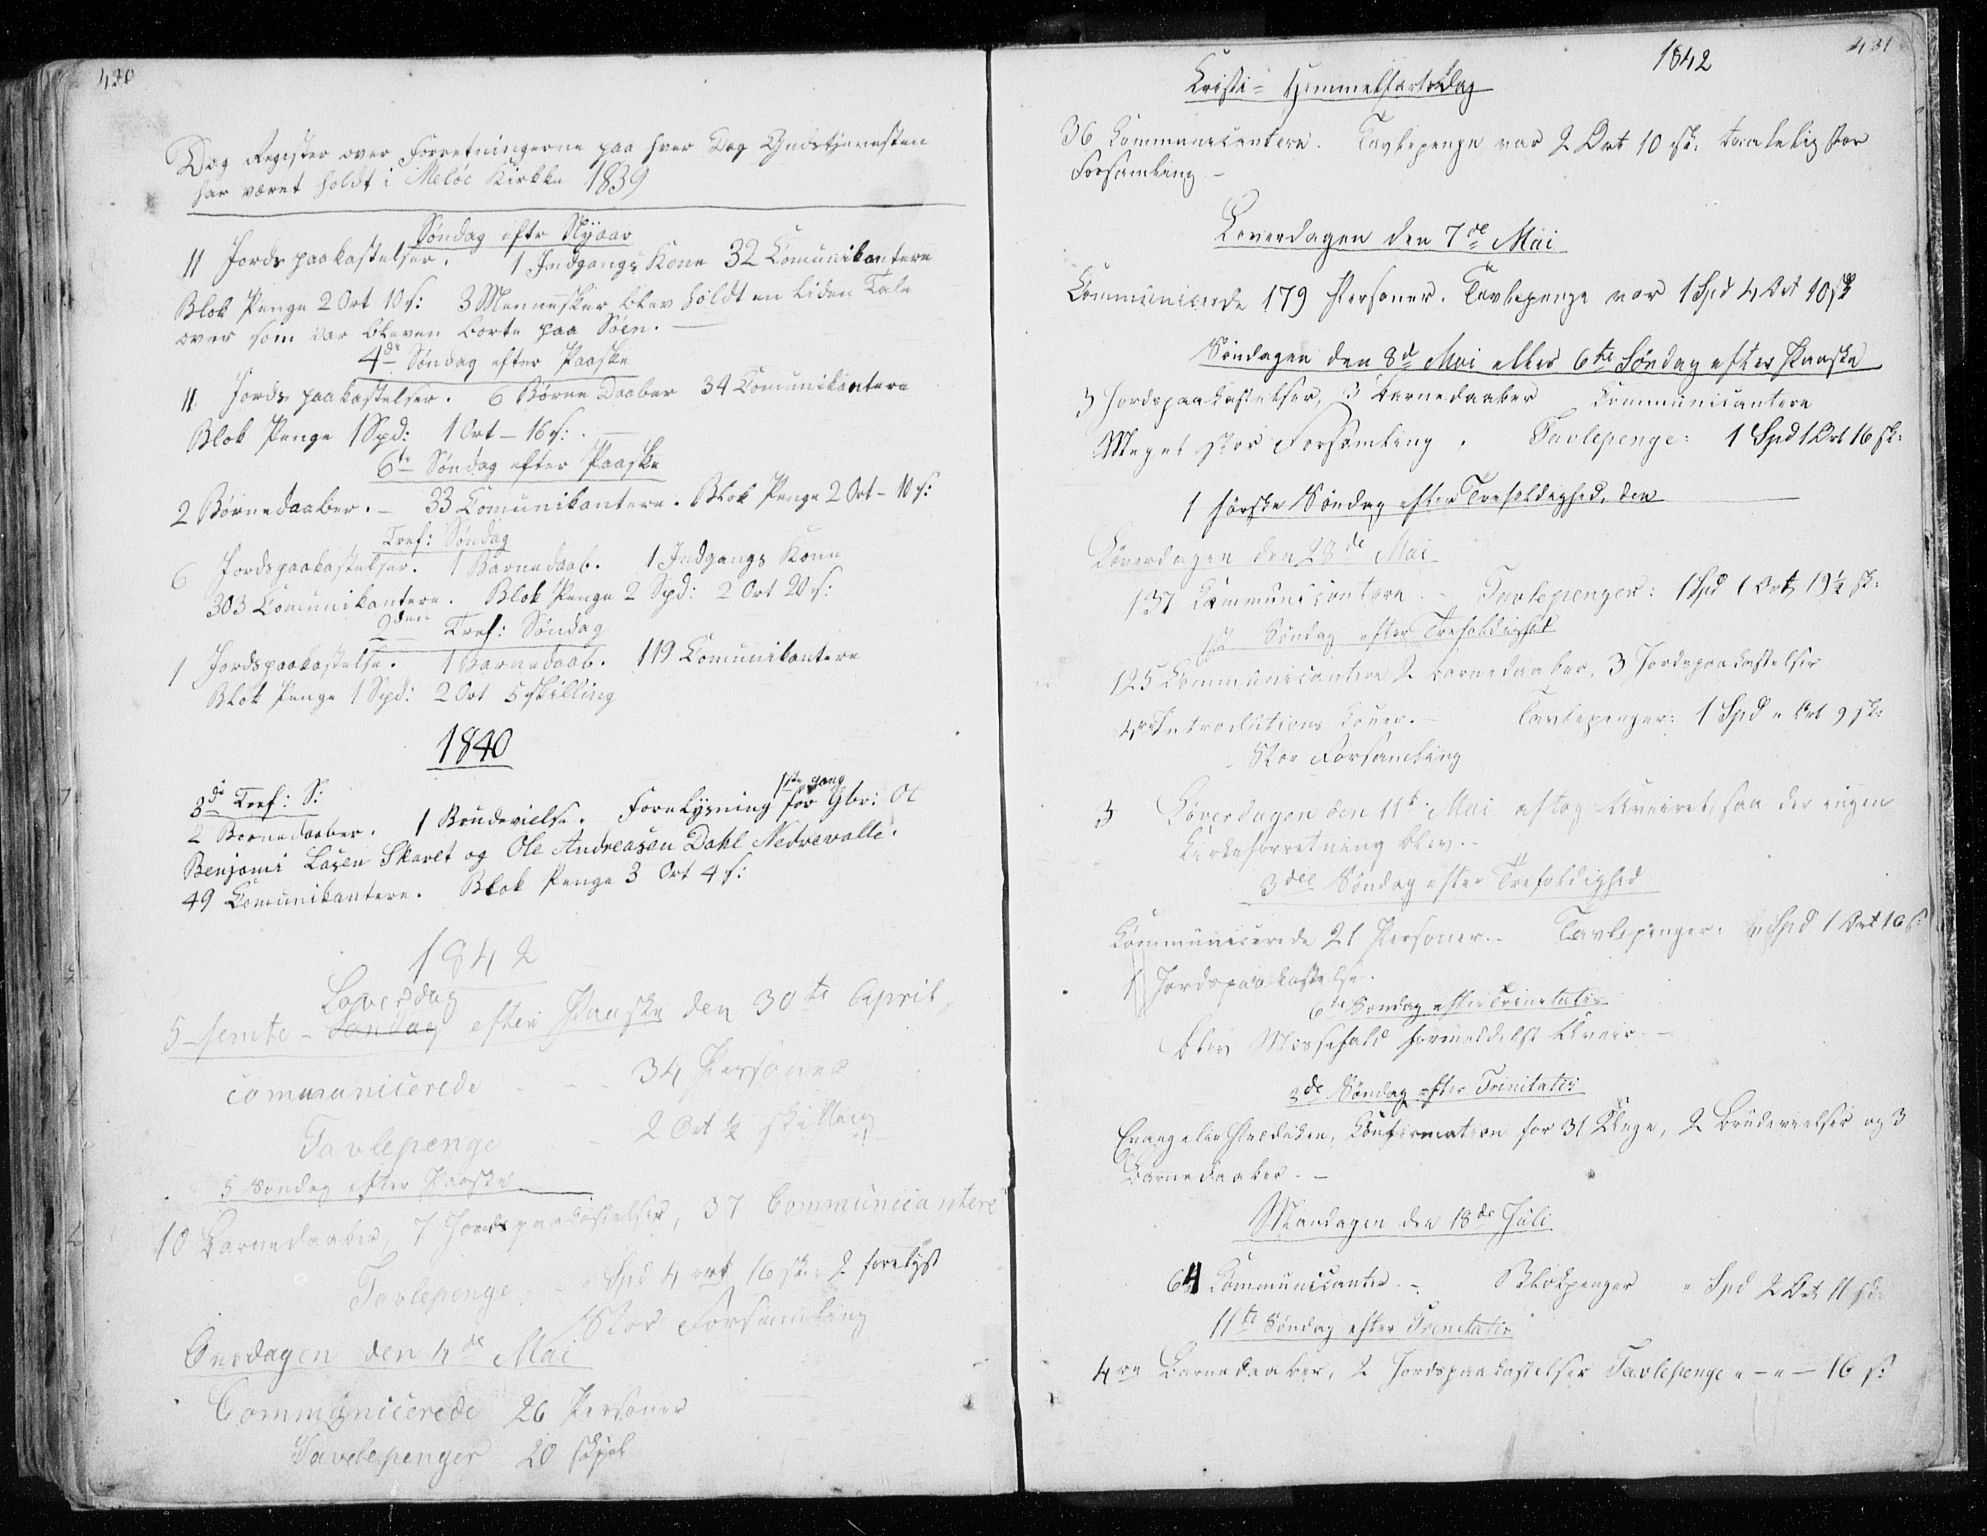 430
Dag Register over Forretningerne paa hver Dag Gudstjenesten
har været holdt i Meløe Kirkke 1839
Søndag eftr Nÿaar
11 Jords paakastelser. 1 Indgangs Kone 32 Comunikantere
Blok Penge 2 Ort 10 s: 3 Mennesker blev holdt en liden Tale
over som var bleven borte paa Søen. —
4de Søndag efter Paaske
11 Jords paakastelser. 6 Børne Daaber 34 Comunikantere
Blok Penge 1 Spd: 1 Ort – 16 s: . —
6te Søndag efter Paaske
2 Børnedaaber. – 33 Comunikantere. Blok Penge 2 Ort – 10 s:
Tref: Søndag
6 Jordspaakastelser. 1 Barnedaab. 1 Indgangs Kone
303 Comunikantere. Blok Penge 2 Spd: 2 Ort 20 s:
2den Tref: Søndag
1 Jordspaakastelse. 1 Barnedaab. 119 Comunikantere
Blok Penge 1 Spd: 2 Ort 5 skilling
1840
3de Tref: S:
1ste gang
2 Bornedaaber. 1 Brudevielse. Forelysning for Gbr: Ol
Benjami Lasen Skaret og Ole Andreasen Dahl Nedrevalle.
49 Comunikantere. Blok Penge 3 Ort 4 s:
1842
Løverdag
5 femte – Søndag efter Paaske den 30te April
communicerede – – – 34 Personer
Tavlepenge – 2 Ort ½ skilling
5 Søndag efter Paaske
10 Barnedaaber, 7 Jordspaakastelser, 37 Communicantere
Tavlepenge – " Spd 4 ort 16 sk: 2 forelyst
Stor Forsamling
Onsdagen den 4de Mai
Communicerede 26 Personer
Tavelepenger 20
431
1842
Cristi = Himmelfartsdag
36 Communicantere. Tavlepenge var 2 Ort 10 sk: temmelig stor
Forsamling –
Løverdagen den 7de Mai
Communicerede 179 Personer. Tavlepenge var 1 Spd 4 Ort 10 sk
Søndagen den 8de Mai eller 6te Søndag efter Paaske
3 Jordspaakastelser, 3 barnedaaber Communicantere
Meget stor Forsamling. Tavlepenge: 1 Spd 1 Ort 16 sk:
1 første Søndag efter Trefoldighed, den
Løverdagen den 28de Mai
137 Communicantere. – Tavlepenger: 1 Spd 1 Ort 19½ sk:
1ste Søndag efter Trefoldighed
125 Communicantere 2 barnedaaber, 3 Jordspaakastelser
4re Introductions koner. – Tavlepenger: 1 Spd " Ort 9 sk:
– Stor Forsamling
3 Løverdagen den 11te Mai aftog Uveiret, saa der ingen
Kirkeforretning blev. –
3die Søndag efter Trefoldighed
Communicerede 21 Personer. – Tavlepenger: " Spd 1 Ort 16 s:
1 Jordspaakastelse.
6te Søndag efter Trinitatis
blev Messefald formedelst Uveir. –
8de Søndag efter Trinitatis
Confirmation for 31 Unge, 2 Brüdevielser og 3
Barnedaaber. –
Mandagen den 18de Juli
64 Communicanter. – Blokpenger " Spd 2 Ort 11 sk:
11te Søndag efter Trinitatis
4re Barnedaaber, 2 Jordspaakastelser Tavlepenge " – " – 16 s: